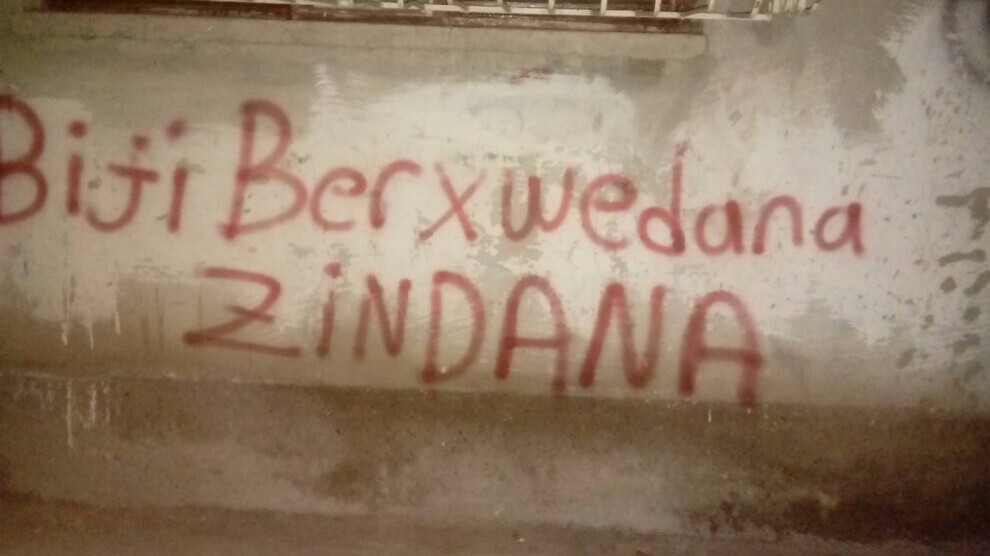 Biji Berxwedana
ZiNDANA